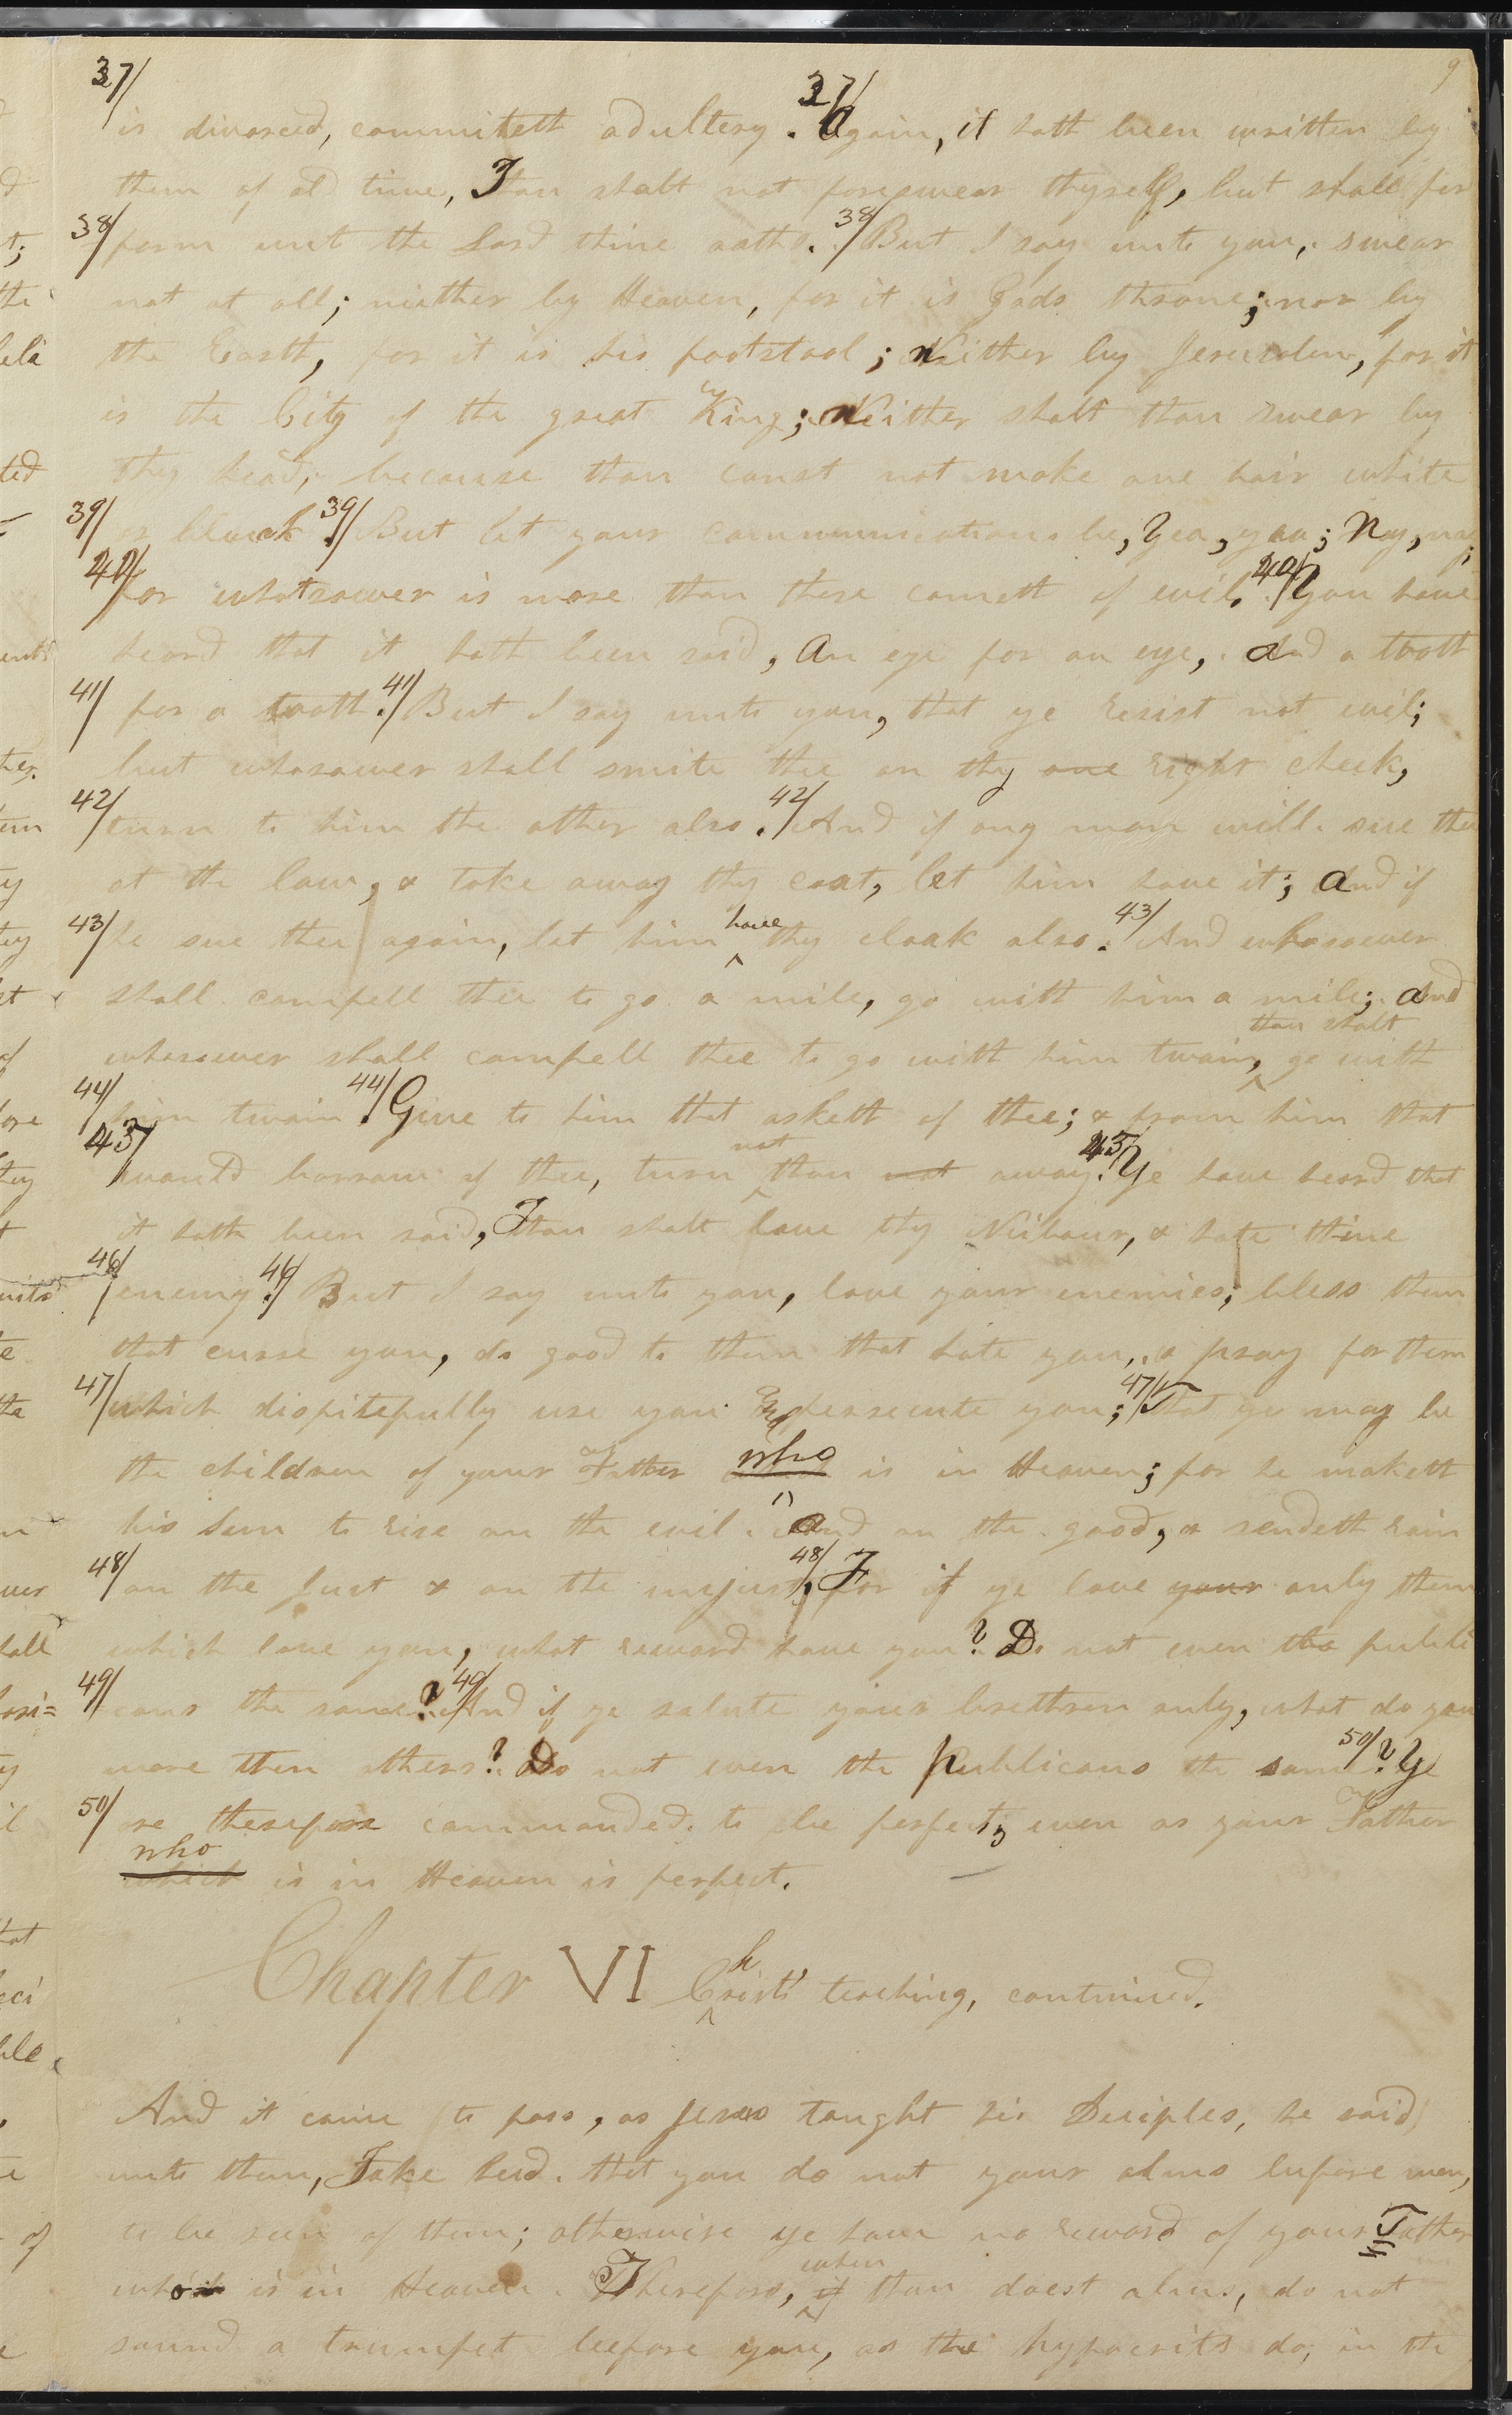 37/ 37/ 9
is divorced, committeth adultery. Again, it hath been written by
them of old time, Thou shalt not foreswear thyself, but shall per
38/ form unt the Lord thine oaths. 38/ But I say unto you, swear
not at all; niether by Heaven, for it is Gods throne; nor by
the Earth, for it is his footstool; neither by Jerusalem, for it
is the City of the great King; neither shalt thou swear by
thy head, because thou canst not make one hair white
39/ or black. 39/ But let your communications be, Yea, yea; Nay, nay;
40/ for whatsoever is more than these cometh of evil. 40/ You have
heard that it hath been said, An eye for an eye, and a tooth
41/ for a tooth. 41/ But I say unto you, that ye resist not evil;
but whosoever shall smite thee on thy one right cheek,
42/ turn to him the other also. 42/ And if any man will sue thee
at the law, & take away thy coat, let him have it; and if
43/ he sue thee again, let him have thy cloak also. 43/ And whosoever
shall compell thee to go a mile, go with him a mile; and
whosoever shall compell thee to go with him twain, thou shalt go with
44/ him twain. 44/ Give to him that asketh of thee; & from him that
45/ would borrow of thee, turn not thou not away. 45/ Ye have heard that
it hath been said, Thou shalt love thy Niebour, & hate thine
46/ enemy. 46/ But I say unto you, love your enemies; bless them
that curse you, do good to them that hate you, & pray for them
47/ which dispitefully use you and persecute you; 47/ That ye may be
the children of your Father who is in Heaven; for he maketh
his Sun to rise on the evil and on the good, & sendeth rain
48/ on the Just & on the unjust. 48/ For if ye love your only them
which love you, what reward have you? Do not even the publi
49/ cans the same? 49/ And if ye salute your brethren only, what do you
more then others? Do not even the publicans the same? 50/ Ye
50/ are therefore commanded to be perfect, even as your Father
who which is in Heaven is perfect.
Chapter VI Christs' teaching, continued.
And it came to pass, as Jesus taught his Deciples, he said
unto them, Take heed that you do not your alms before men,
to be seen of them; otherwise ye have no reward of your Father
who is in Heaven. Therefore, when if thou doest alms, do not
sound a trumpet beefore you, as the hypocrits do, in the